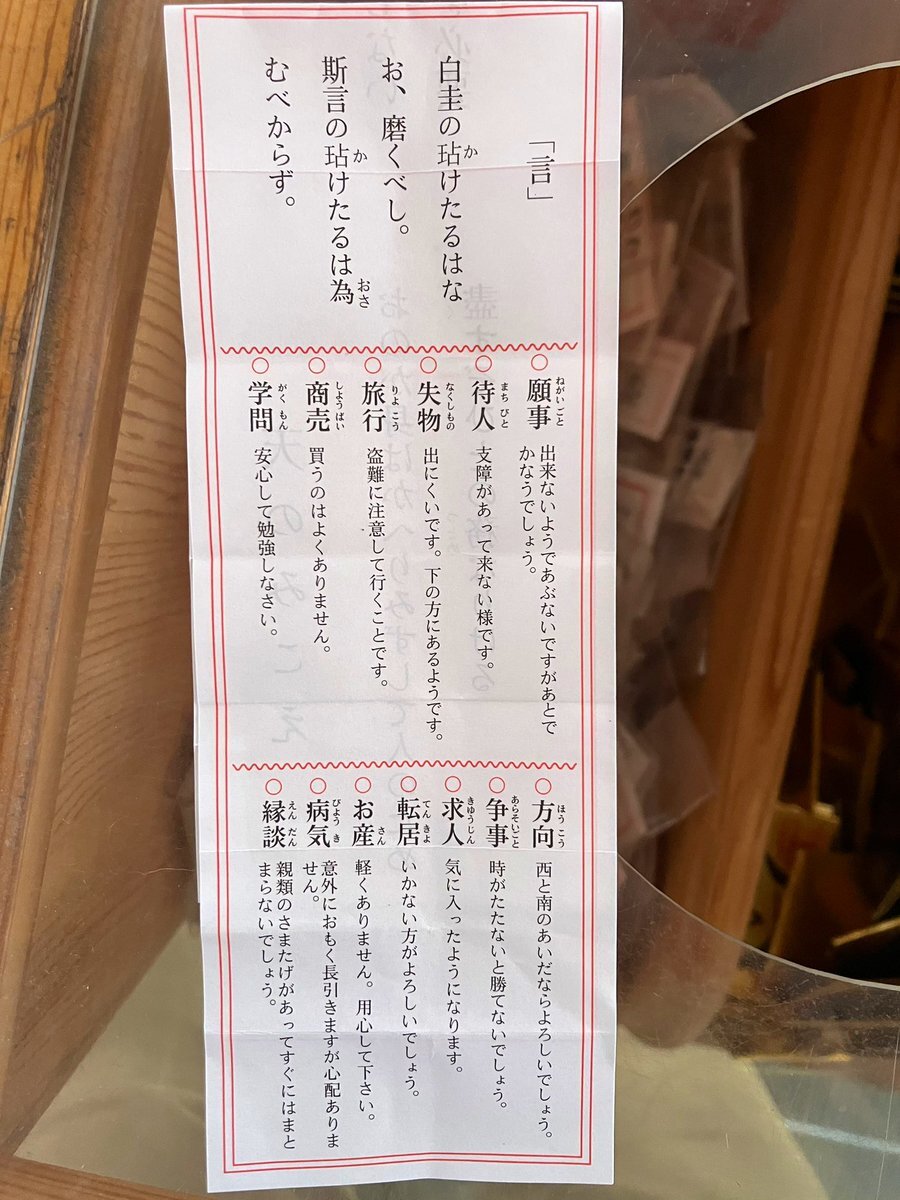 「言」
白圭の玷けたるはな
お、磨くべし。
斯言の玷けたるは為
むべからず。
○願事 出来ないようであぶないですがあとで
かなうでしょう。
○待人 支障があって来ない様です。
○失物 出にくいです。下の方にあるようです。
○旅行 盗難に注意して行くことです。
○商売 買うのはよくありません。
○学問 安心して勉強しなさい。
○方向 西と南のあいだならよろしいでしょう。
○争事 時がたたないと勝てないでしょう。
○求人 気に入ったようになります。
○転居 いかない方がよろしいでしょう。
○お産 軽くありません。用心して下さい。
○病気 意外におもく長引きますが心配ありま
せん。
○縁談 親類のさまたげがあってすぐにはまと
まらないでしょう。